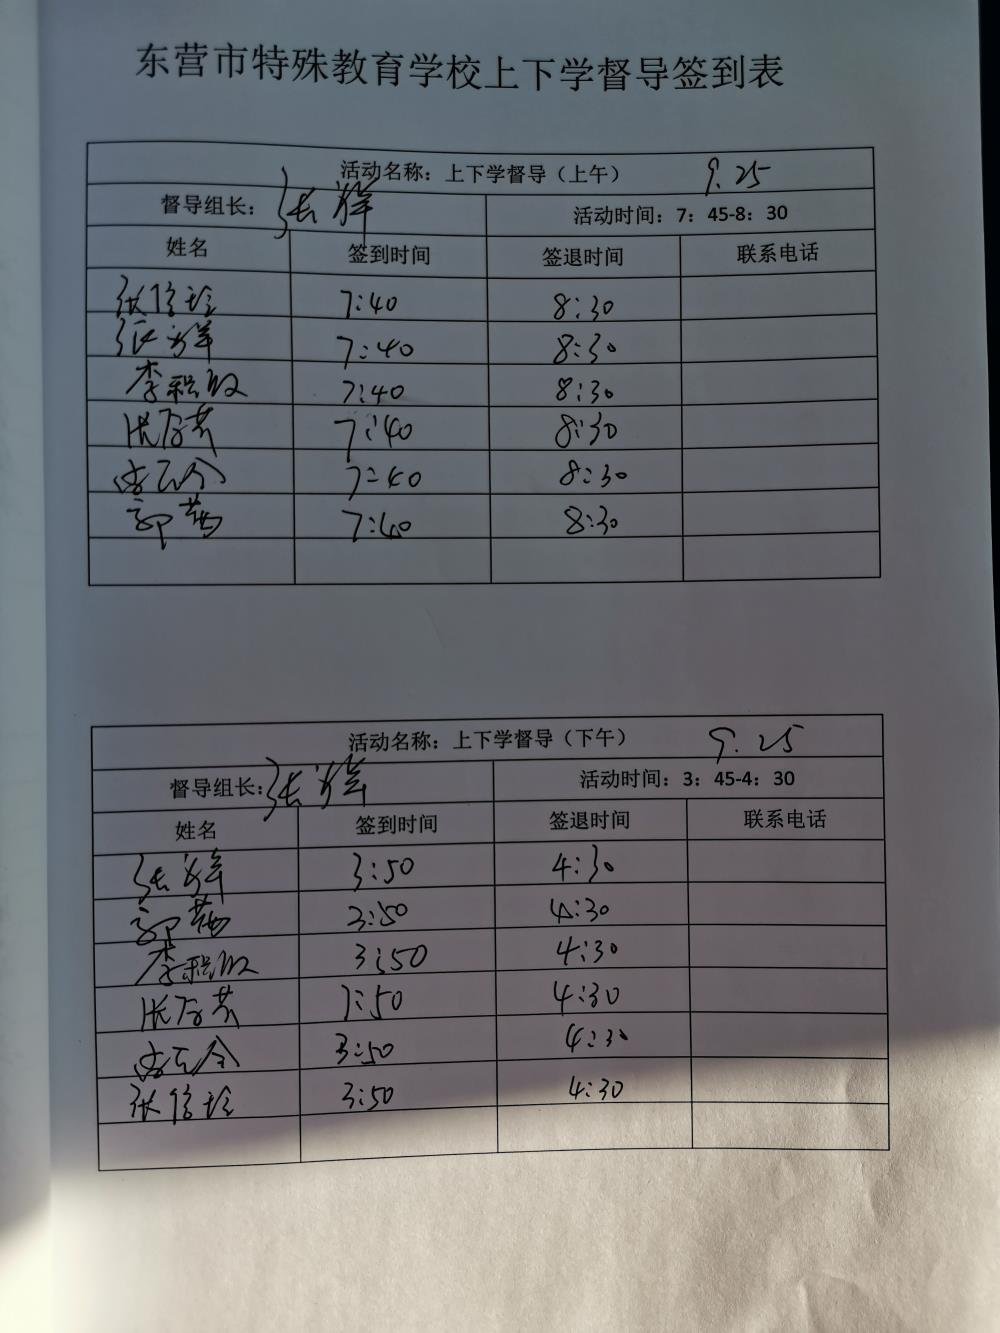 东营市特殊教育学校上下学督导签到表
活动名称：上下学督导（上午） 9.25
督导组长：张 活动时间：7：45-8：30
姓名 签到时间 签退时间 联系电话
张 7:40 8:30
张 7:40 8:30
李 7:40 8:30
7:40 8:30
7:40 8:30
郭茜 7:40 8:30
活动名称：上下学督导（下午） 9.25
督导组长：张 活动时间：3：45-4：30
姓名 签到时间 签退时间 联系电话
张 3:50 4:30
郭茜 3:50 4:30
李 3:50 4:30
:50 4:30
3:50 4:30
张 3:50 4:30